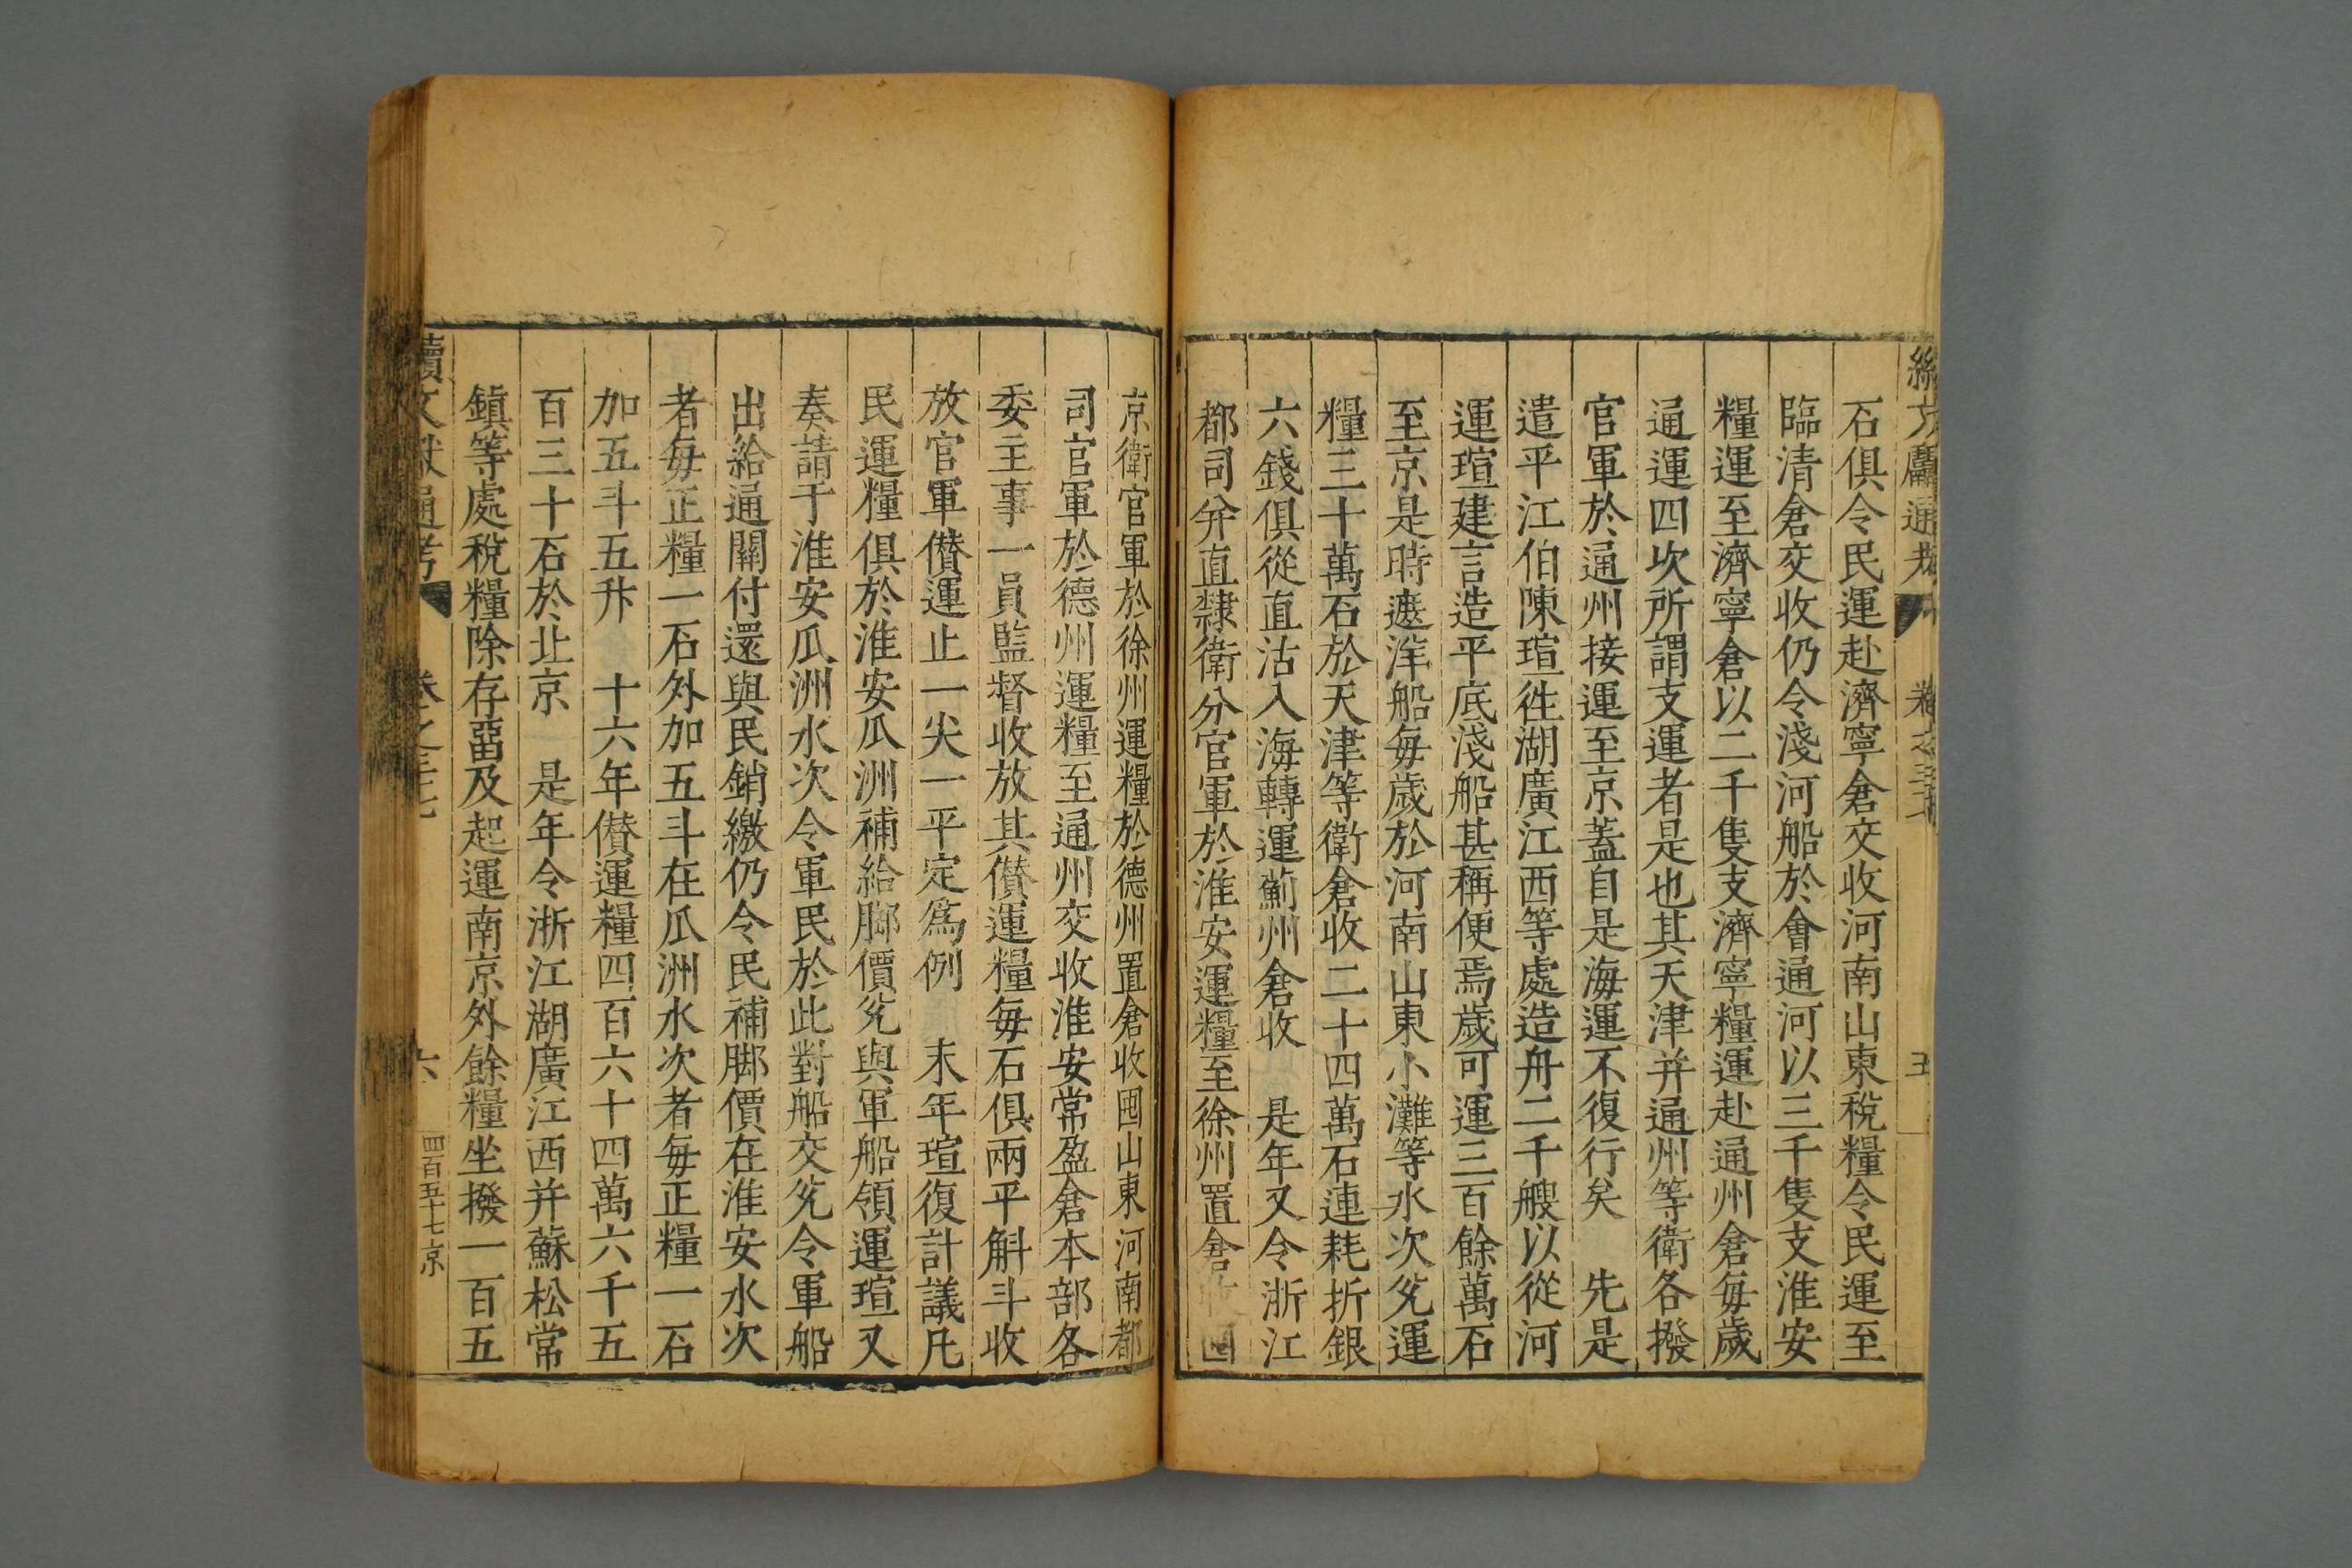 石俱令民運赴濟寧倉交收河南山東稅糧令民運至
臨清倉交收仍令淺河船於會通河以三千隻支淮安
糧運至濟寧倉以二千隻支濟寧糧運赴通州倉每歲
通運四次所謂支運者是也其天津并通州等衛各撥
官軍於通州接運至京蓋自是海運不復行矣　先是
遣平江伯陳瑄徃湖廣江西等處造舟二千艘以從河
運瑄建言造平底淺船甚稱便焉歲可運三百餘萬石
至京是時遮洋船每歲於河南山東小灘等水次兊運
糧三十萬石於天津等衛倉收二十四萬石連耗折銀
六錢俱從直沽入海轉運薊州倉收　是年又令浙江
都司并直隸衛分官軍於淮安運糧至徐州置倉收囤
京衛官軍於徐州運糧於德州置倉收囤山東河南都
司官軍於德州運糧至通州交收淮安常盈倉本部各
委主事一員監督收放其儧運糧每石俱兩平斛斗收
放官軍儧運止一尖一平定爲例　末年瑄復計議凡
民運糧俱於淮安瓜洲補給脚價兊與軍船領運瑄又
奏請于淮安瓜洲水次令軍民於此對船交兊令軍船
出給通關付還與民銷繳仍令民補脚價在淮安水次
者每正糧一石外加五斗在瓜洲水次者每正糧一石
加五斗五升　十六年儧運糧四百六十四萬六千五
百三十石於北京　是年令浙江湖廣江西并蘇松常
鎮等處稅糧除存畱及起運南京外餘糧坐撥一百五
續文獻通考　卷之三十七　六　四百五十七京